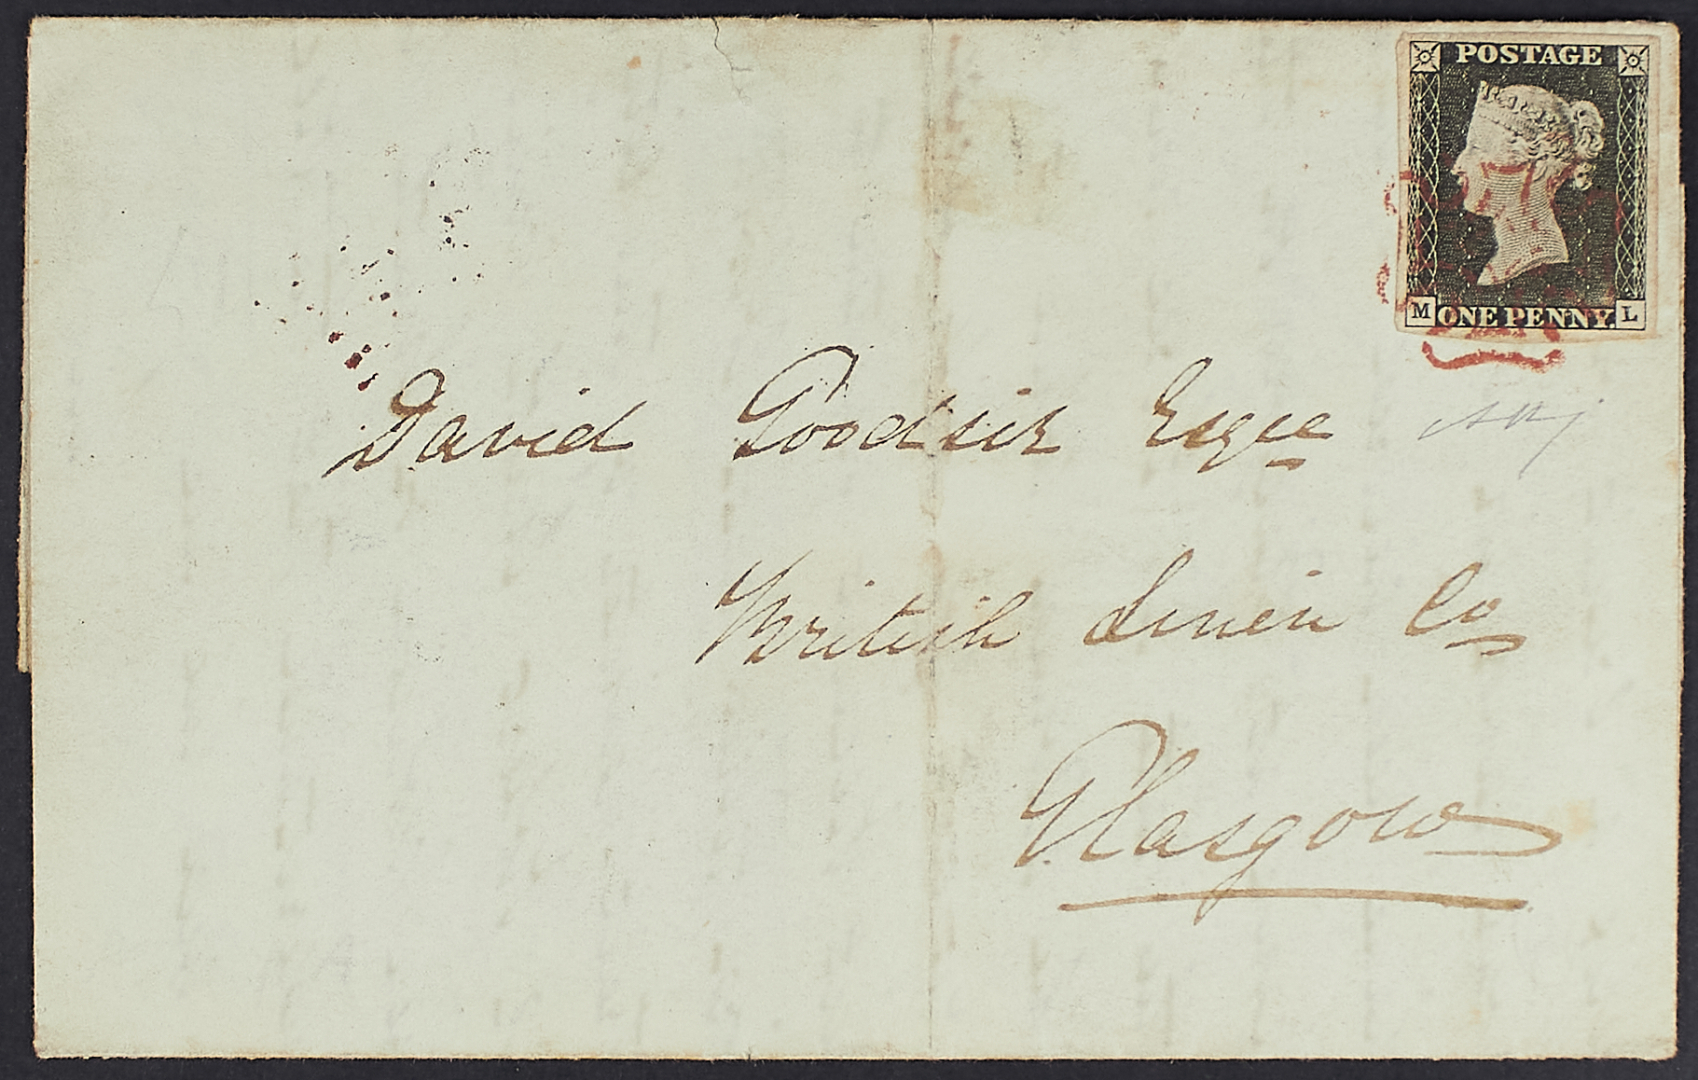 POSTAGE
M ONE PENNY. L
David Goodsir Esqre
British Linen Co
Glasgow